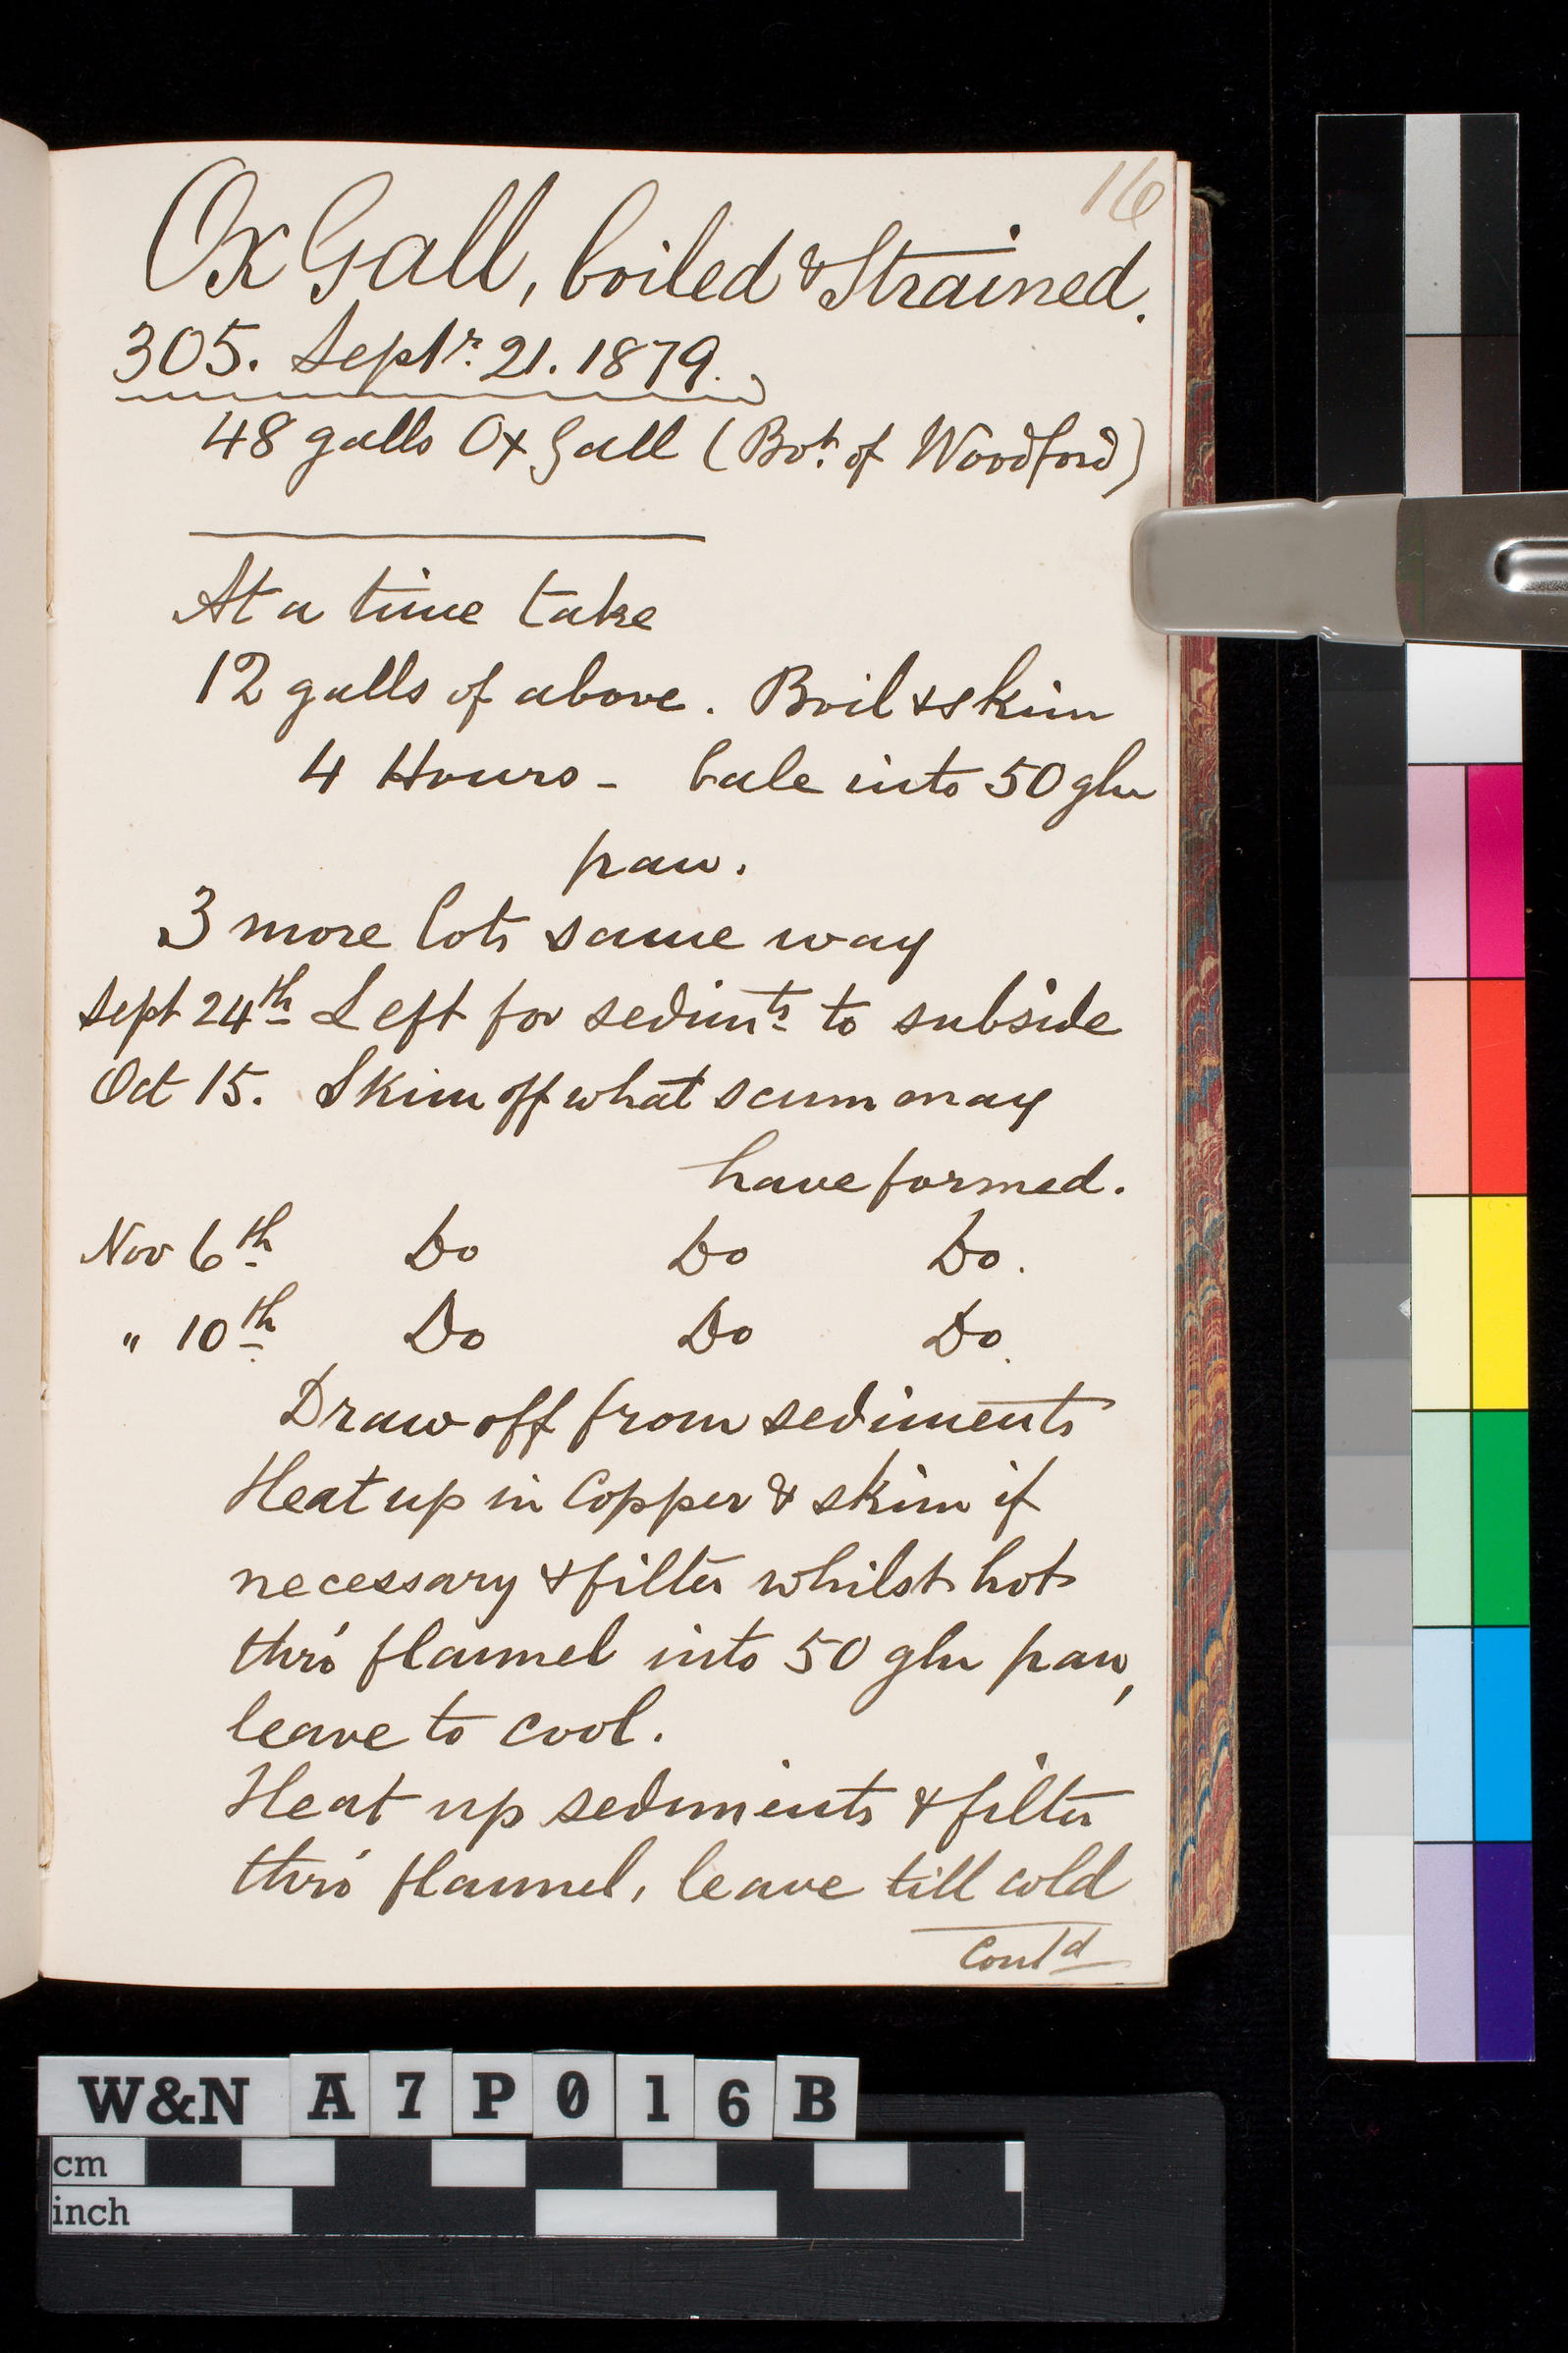 16
Ox Gall, boiled & Strained.
305. Septr. 21. 1879.
48 galls Ox Gall (Bot. of Woodford)
At a time take
12 galls of above. Boil & skim
4 Hours - bale into 50 gln
pan.
3 more lots same way
Sept 24th Left for sedimts to subside
Oct 15. Skim off what scum may
have formed.
Nov 6th Do Do Do.
" 10th Do Do Do.
Draw off from sediments
Heat up in Copper & skim if
necessary & filter whilst hot
thro' flannel into 50 gln pan,
leave to cool.
Heat up sediments & filter
thro' flannel, leave till cold
Contd
W&N A7P016B
cm
inch